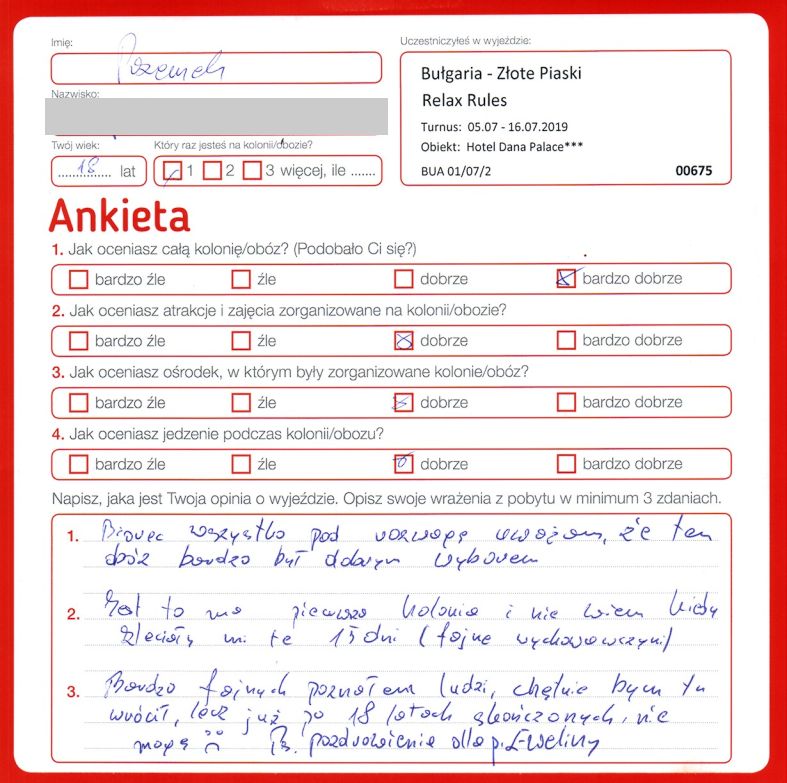 Imię:
Przemek
Uczestniczyłeś w wyjeździe:
Bułgaria - Złote Piaski
Relax Rules
Turnus: 05.07 - 16.07.2019
Obiekt: Hotel Dana Palace***
BUA 01/07/2
00675
Nazwisko:
Twój wiek:
Który raz jesteś na kolonii/obozie?
18 lat
1 2 3 więcej, ile .......
Ankieta
1. Jak oceniasz całą kolonię/obóz? (Podobało Ci się?)
bardzo źle źle dobrze bardzo dobrze
2. Jak oceniasz atrakcje i zajęcia zorganizowane na kolonii/obozie?
bardzo źle źle dobrze bardzo dobrze
3. Jak oceniasz ośrodek, w którym były zorganizowane kolonie/obóz?
bardzo źle źle dobrze bardzo dobrze
4. Jak oceniasz jedzenie podczas kolonii/obozu?
bardzo źle źle dobrze bardzo dobrze
Napisz, jaka jest Twoja opinia o wyjeździe. Opisz swoje wrażenia z pobytu w minimum 3 zdaniach.
1. Biorąc wszystko pod rozwagę uważam, że ten
obóz bardzo był dobrym wyborem
2. Jest to ma pierwsza kolonia i nie wiem kiedy
zleciały mi te 15 dni (fajne wychowawczyni)
3. Bardzo fajnych poznałem ludzi, chętnie bym tu
wrócił, lecz już po 18 latach skończonych, nie
mogę :( Ps. pozdrowienia dla p. Eweliny